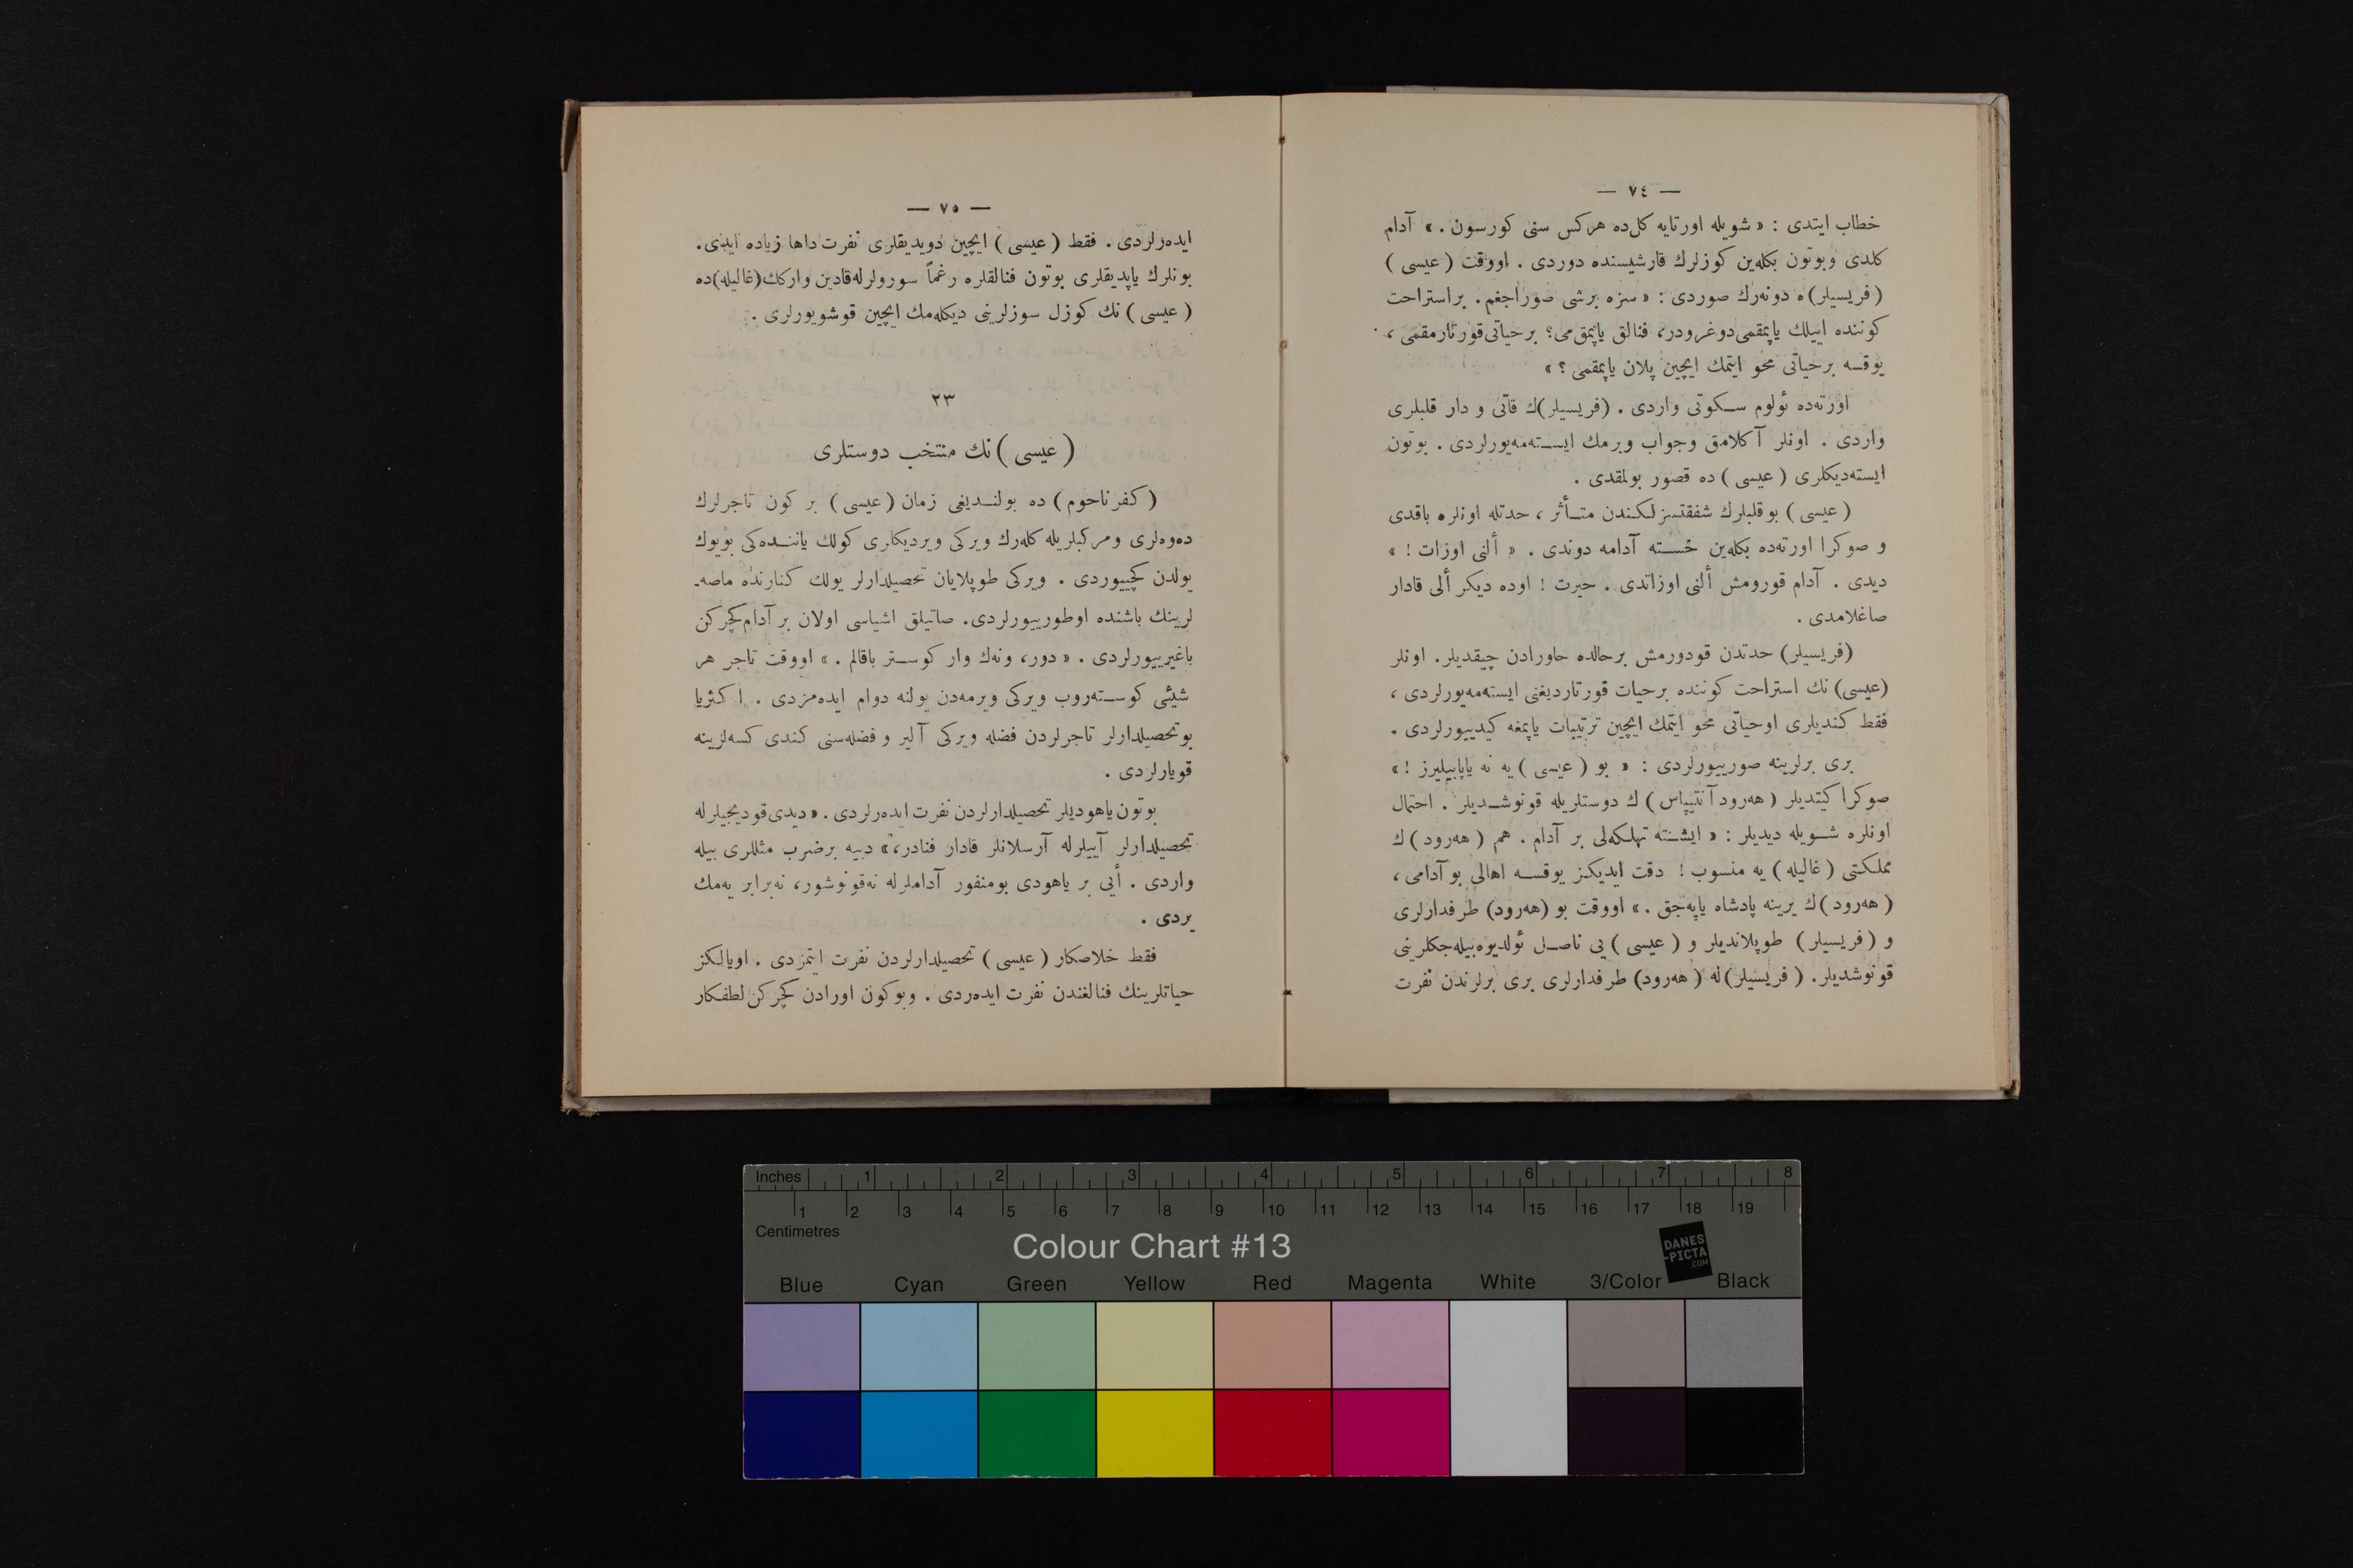 — ٧٤ —
خطاب ایتدی : « شویله اورتایه کل‌ده هرکس سنی کورسون . » آدام
کلدی وبوتون بکله‌ین کوزلرك قارشیسنده دوردی . اووقت ( عیسی )
(فریسیلر)ه دونه‌رك صوردی : « سزه برشی صوراجغم . براستراحت
کوننده اییلك یاپمقمی‌دوغرودر، فنالق یاپمق‌می؟ برحیاتی‌قورتارمقمی ،
یوقسه برحیاتی محو ایتمك ایچین پلان یاپمقمی ؟ »
اورته‌ده ئولوم سکوتی واردی . (فریسیلر)ك قاتی و دار قلبلری
واردی . اونلر آکلامق وجواب ویرمك ایسته‌مه‌یورلردی . بوتون
ایسته‌دیکلری ( عیسی ) ده قصور بولمقدی .
( عیسی ) بوقلبلرك شفقتسزلکندن متأثر ، حدتله اونلره باقدی
و صوکرا اورته‌ده بکله‌ین خسته آدامه دوندی . « ألنی اوزات ! »
دیدی . آدام قورومش ألنی اوزاتدی . حیرت ! اوده دیکر ألی قادار
صاغلامدی .
(فریسیلر) حدتدن قودورمش برحالده حاورادن چیقدیلر. اونلر
(عیسی) نك استراحت کوننده برحیات قورتاردیغنی ایسته‌مه‌یورلردی ،
فقط کندیلری اوحیاتی محو ایتمك ایچین ترتیبات یاپمغه کیدییورلردی .
بری برلرینه صورییورلردی : « بو ( عیسی ) یه نه یاپابیلیرز ! »
صوکرا کیتدیلر ( هه‌رود آنتیپاس ) ك دوستلریله قونوشدیلر . احتمال
اونلره شویله دیدیلر : « ایشته تهلکه‌لی بر آدام . هم ( هه‌رود ) ك
مملکتی ( غالیله ) یه منسوب ! دقت ایدیکز یوقسه اهالی بوآدامی ،
( هه‌رود ) ك یرینه پادشاه یاپه‌جق . » اووقت بو (هه‌رود) طرفدارلری
و ( فریسیلر ) طوپلاندیلر و ( عیسی ) یی ناصل ئولدیره‌بیله‌جکلرینی
قونوشدیلر. ( فریسیلر) له ( هه‌رود) طرفدارلری بری برلرندن نفرت
— ٧٥ —
ایده‌رلردی . فقط ( عیسی ) ایچین دویدیقلری نفرت داها زیاده ایدی.
بونلرك یاپدیقلری بوتون فنالقلره رغماً سورولرله‌قادین وارکك(غالیله)ده
( عیسی ) نك کوزل سوزلرینی دیکله‌مك ایچین قوشویورلری .
٢٣
( عیسی ) نك منتخب دوستلری
( کفرناحوم ) ده بولندیغی زمان ( عیسی ) بر کون تاجرلرك
ده‌وه‌لری ومرکبلریله کله‌رك ویرکی ویردیکلری کولك یاننده‌کی بویوك
یولدن کچییوردی . ویرکی طوپلایان تحصیلدارلر یولك کنارنده ماصه‌ـ
لرینك باشنده اوطورییورلردی. صاتیلق اشیاسی اولان بر آدام‌کچرکن
باغیرییورلردی . « دور، ونه‌ك وار کوستر باقالم . » اووقت تاجر هر
شیئی کوسته‌روب ویرکی ویرمه‌دن یولنه دوام ایده‌مزدی . اکثریا
بوتحصیلدارلر تاجرلردن فضله ویرکی آلیر و فضله‌سنی کندی کسه‌لرینه
قویارلردی .
بوتون یاهودیلر تحصیلدارلردن نفرت ایده‌رلردی . « دیدی‌قودیجیلرله
تحصیلدارلر آییلرله آرسلانلر قادار فنادر، » دییه برضرب مثللری بیله
واردی . أیی بر یاهودی بومنفور آداملرله نه‌قونوشور، نه‌برابر یه‌مك
یردی .
فقط خلاصکار ( عیسی ) تحصیلدارلردن نفرت ایتمزدی . اویالکز
حیاتلرینك فنالغندن نفرت ایده‌ردی . وبوکون اورادن کچرکن‌لطفکار
Inches 1 2 3 4 5 6 7 8
1 2 3 4 5 6 7 8 9 10 11 12 13 14 15 16 17 18 19
Centimetres
Colour Chart #13
DANES
-PICTA
.COM
Blue Cyan Green Yellow Red Magenta White 3/Color Black